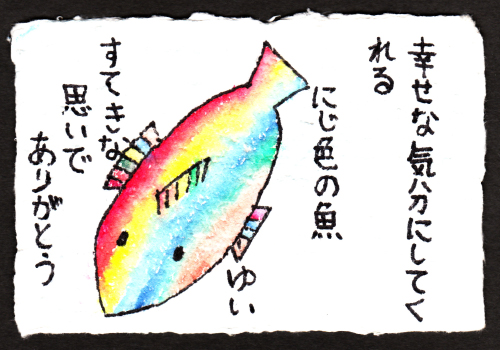 幸せな気分にしてく
れる
にじ色の魚
ゆい
すてきな
思いで
ありがとう